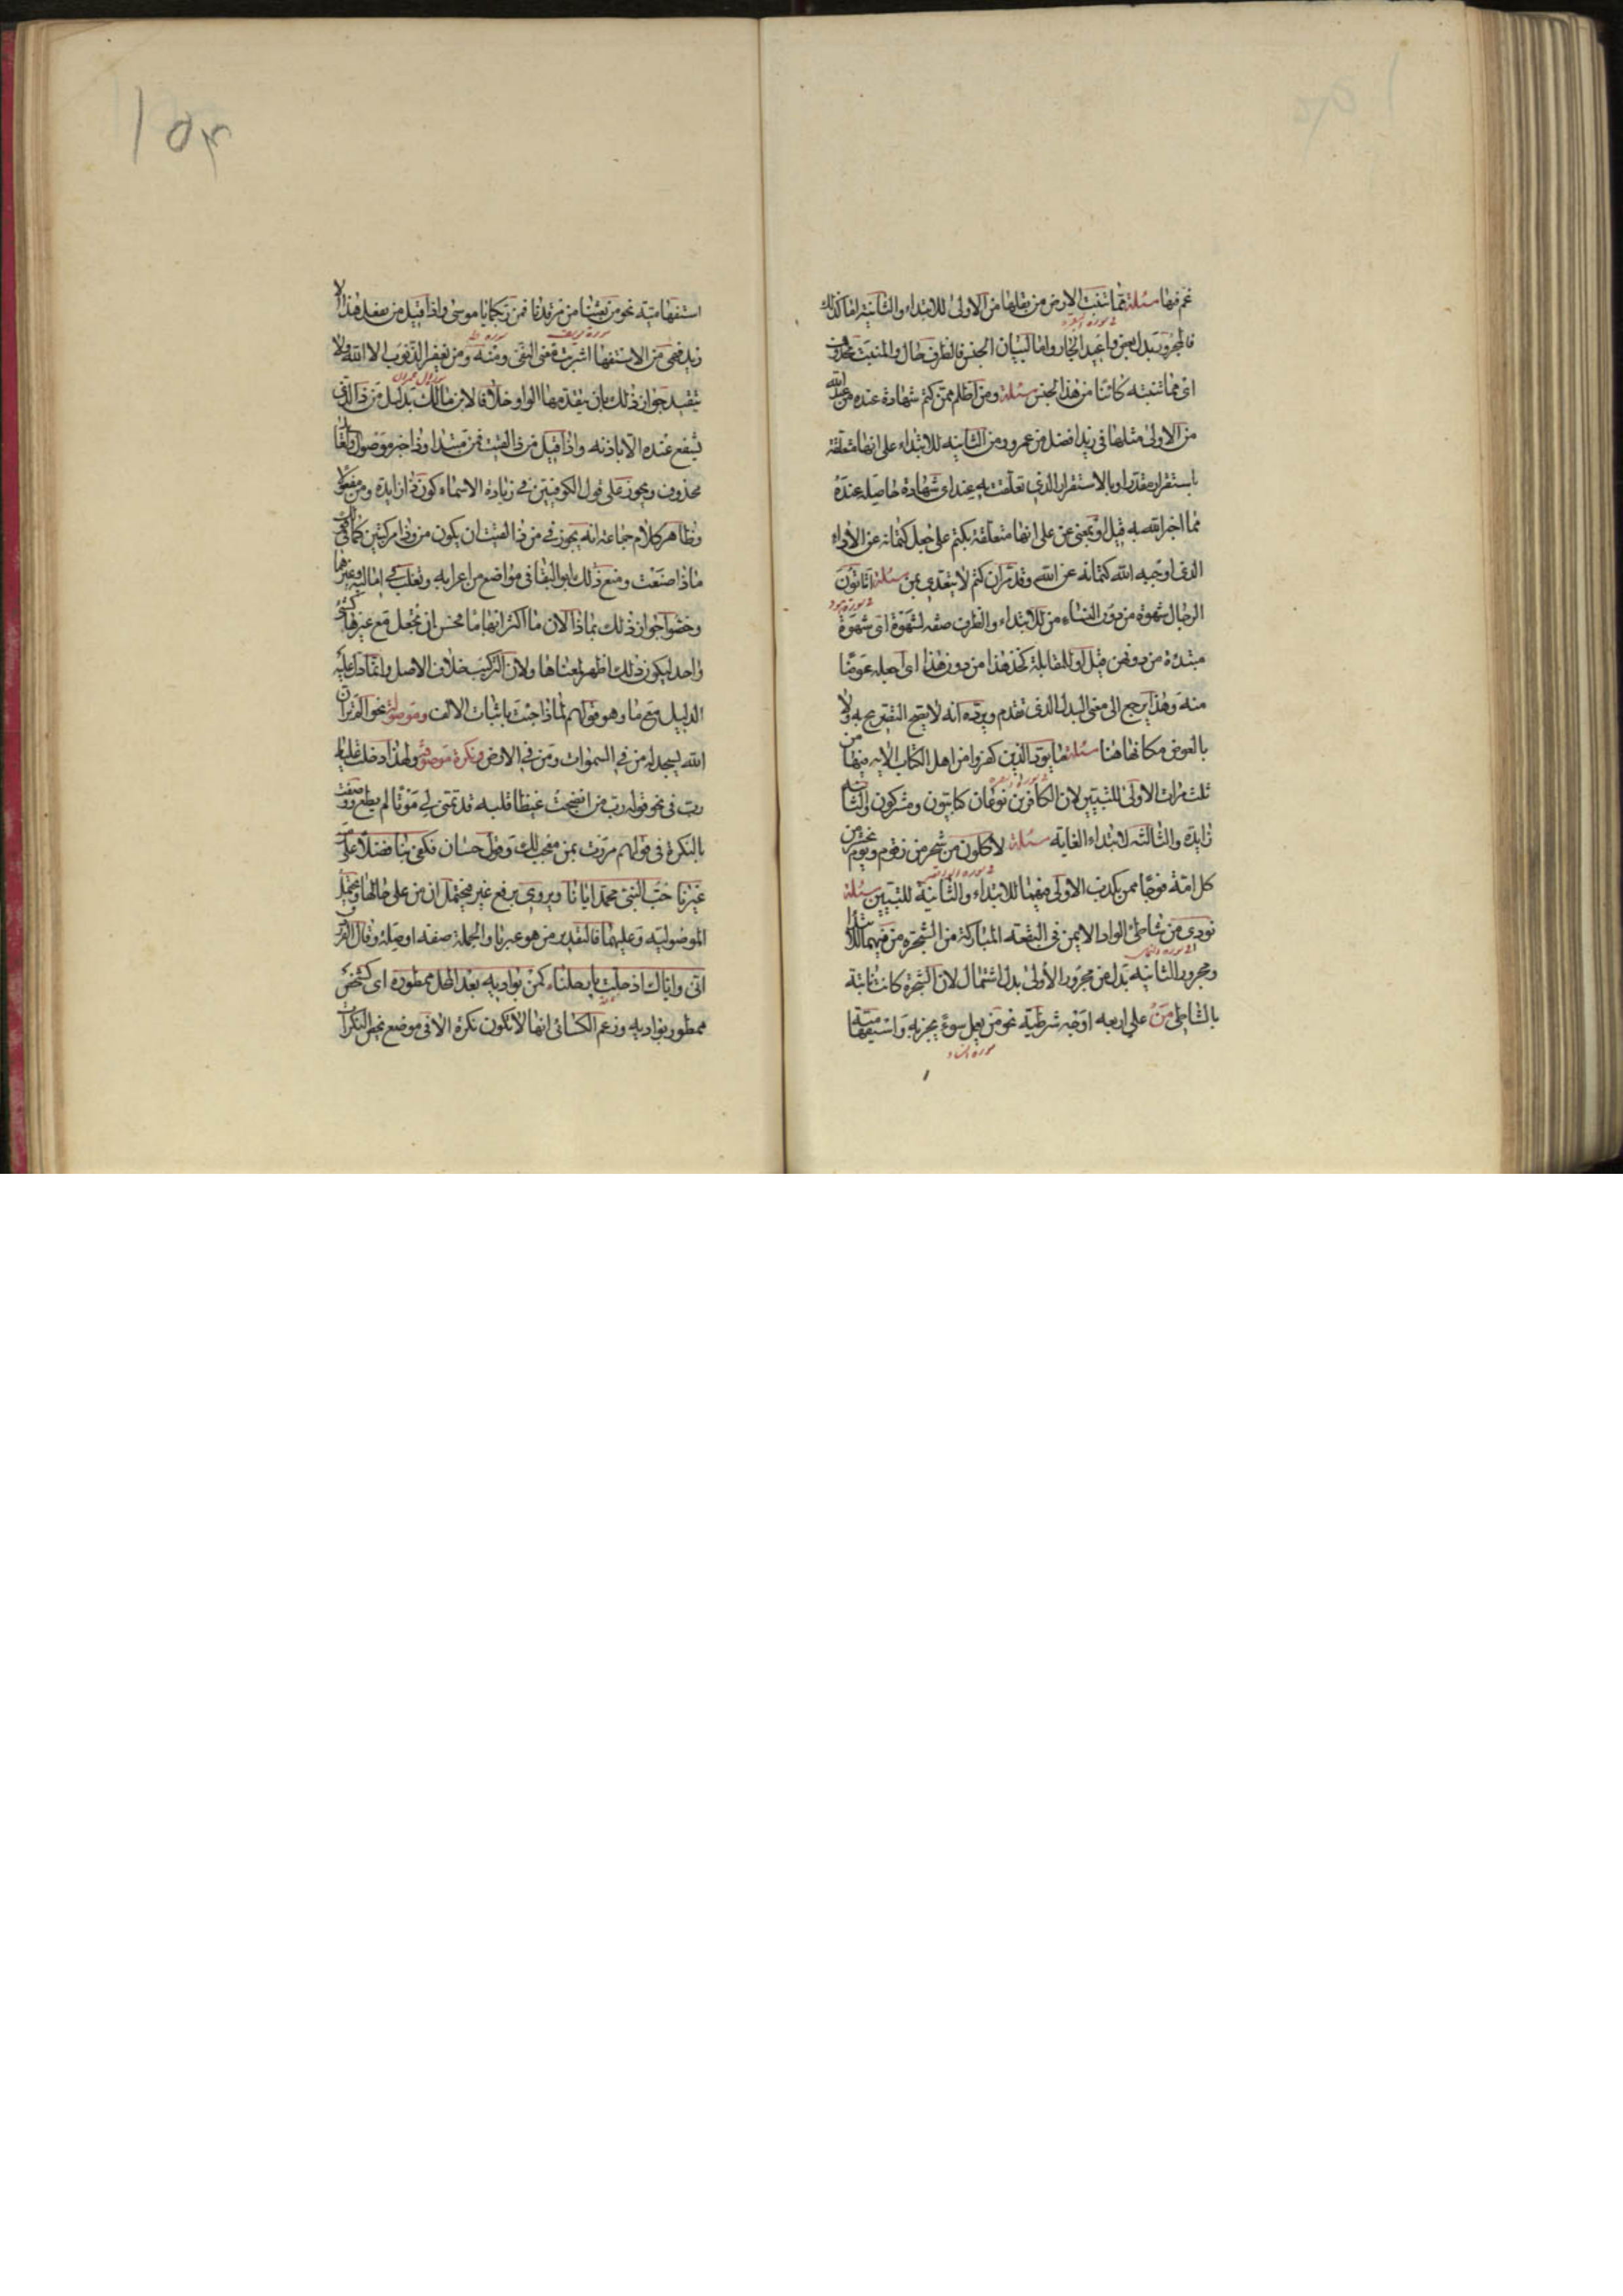 غم فيها مسئلة مما تنبت الارض من بقلها من الاولى للابتداء والثانية اما كذلك
فالمجرور بدل بعض واعيد الجار واما لبيان الجنس فالظرف حال والمنبت محذوف
اى مما تنبته كائنا من هذا الجنس مسئلة ومن اظلم ممن كتم شهادة عنده من الله
من الاولى مثلها فى زيد افضل من عمرو ومن الثانية للابتداء على انها متعلقة
باستقرار مقدر او بالاستقرار الذى تعلقت به عند اى شهادة حاصلة عنده
مما اخبر الله به قيل او بمعنى عن على انها متعلقة بكتم على جعل كتمانه عن الاداء
الذى اوجبه الله كتمانه عن الله وقد مر ان كتم لا يتعدى بمن مسئلة اتاتون
الرجال شهوة من دون النساء من للابتداء والظرف صفة لشهوة اى شهوة
مبتدئة من دونهن قيل او للمقابلة كخذ هذا من دون هذا اى اجعله عوضا
منه وهذا يرجع الى معنى البدل الذى تقدم ويرده انه لا يصح التصريح به ولا
بالعوض مكانها هنا مسئلة ما يود الذين كفروا من اهل الكتاب الاية فيها من
ثلث مرات الاولى للتبيين لان الكافرين نوعان كتابيون ومشركون والثانية
زايدة والثالثة لابتداء الغاية مسئلة لاكلون من شجر من زقوم ويوم نحشر من
كل امة فوجا ممن يكذب الاولى فيهما للابتداء والثانية للتبيين مسئلة
نودى من شاطئ الواد الايمن فى البقعة المباركة من الشجرة من فيهما للابتداء
ومجرور الثانية بدل من مجرور الاولى بدل اشتمال لان الشجرة كانت نابتة
بالشاطئ من على اربعة اوجه شرطية نحو من يعمل سوء يجز به واستفهامية
سورة النساء
استفهامية نحو من بعثنا من مرقدنا فمن ربكما يا موسى واذا قيل من يفعل هذا الا
زيد فهى من الاستفهامية اشربت معنى النفى ومنه ومن يغفر الذنوب الا الله ولا
يتقيد جواز ذلك بان يتقدمها الواو خلافا لابن مالك بدليل من ذا الذى
يشفع عنده الا باذنه واذا قيل من ذا لقيت فمن مبتدا وذا خبر موصول والعائد
محذوف ويجوز على قول الكوفيين فى زيادة الاسماء كون ذا زايدة ومن مفعولا
وظاهر كلام جماعة انه يجوز فى من ذا لقيت ان يكون من وذا مركبتين كما فى
ماذا صنعت ومنع ذلك ابو البقا فى مواضع من اعرابه وثعلب فى اماليه وغيرهما
وخصوا جواز ذلك بماذا الان ما اكثر ابهاما فحسن ان تجعل مع غيرها كشئ
واحد ليكون ذلك اظهر لمعناها ولان التركيب خلاف الاصل وانما دل عليه
الدليل مع ما وهو قولهم لماذا جئت باثبات الالف وموصولة نحو الم تر ان
الله يسجد له من فى السموات ومن فى الارض ونكرة موصوفة ولهذا دخلت عليها
رب فى نحو قوله رب من انضجت غيظا قلبه قد تمنى لى موتا لم يطع ووصفت
بالنكرة فى قولهم مررت بمن معجب لك وقول حسان فكفى بنا فضلا على من
غيرنا حب النبى محمد ايانا ويروى برفع غير فيحتمل ان من على حالها ويحتمل
الموصولية وعليهما فالتقدير من هو غيرنا والجملة صفة او صلة وقال الفرزدق
انى واياك اذ حلت بارحلنا كمن بواديه بعد المحل ممطور اى كشخص
ممطور بواديه وزعم الكسائى انها لا تكون نكرة الا فى موضع يخص النكرات